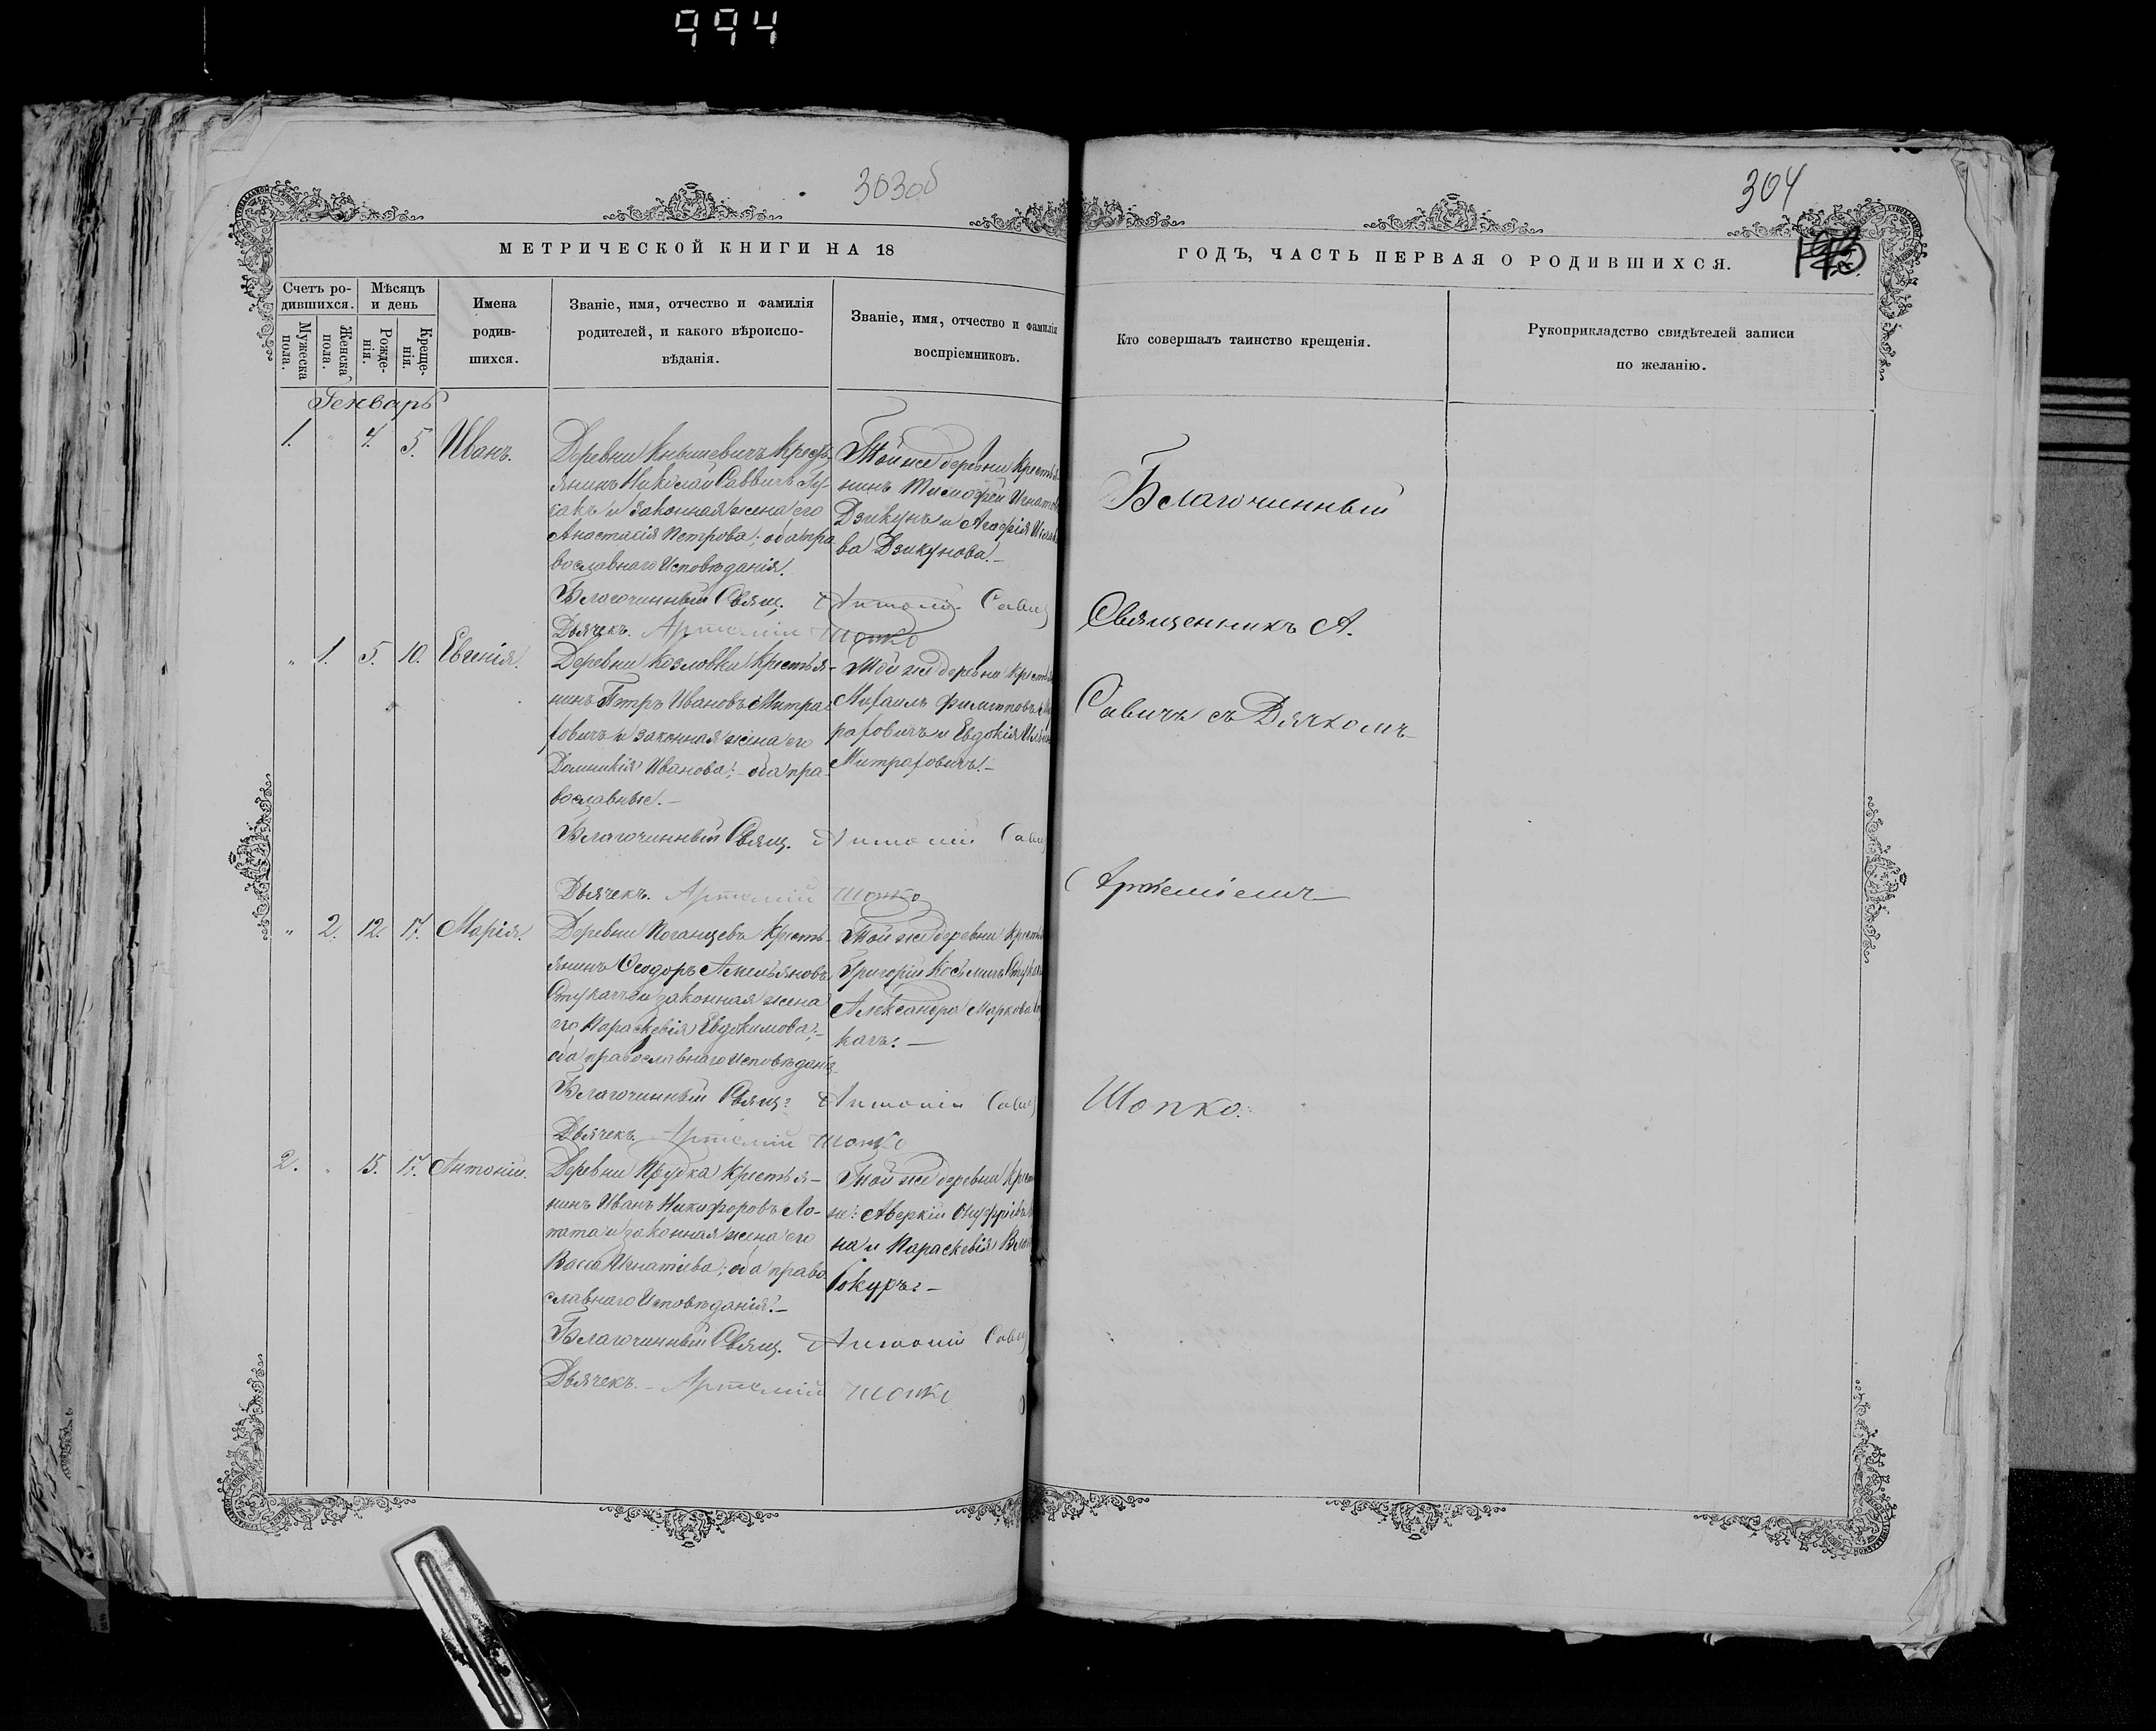 994
303об
304
МЕТРИЧЕСКОЙ КНИГИ НА 18
ГОДЪ, ЧАСТЬ ПЕРВАЯ О РОДИВШИХСЯ.
Счетъ ро-
дившихся.
Мѣсяцъ
и день
Мужеска
пола.
Женска
пола.
Рожде-
нія.
Креще-
нія.
Имена
родив-
шихся.
Званіе, имя, отчество и фамилія
родителей, и какого вѣроиспо-
вѣданія.
Званіе, имя, отчество и фамилія
воспріемниковъ.
Кто совершалъ таинство крещенія.
Рукоприкладство свидѣтелей записи
по желанію.
Генварь
1. " 4. 5. Иванъ.
Деревни Кнышевичъ Кресть-
янинъ Николай Саввичъ
и законная жена его
Анастасія Петрова; оба пра
вославнаго Исповѣданія.
Благочинный Свящ. Антоній Савич
Дьячекъ. Артемій Шопко
Той же деревни Крестья
нинъ Тимофей Игнатов
Дзикунъ и Агафія
ва Дзикунова.
" 1. 5. 10. Евгенія.
Деревни Козловки Крестья-
нинъ Петръ Ивановъ Митра
фовичъ и законная жена его
Домникія Иванова; оба пра-
вославные.
Благочинный Свящ. Антоній Савич
Дьячекъ. Артемій Шопко
Той же деревни Кресть
Михаилъ Филиповъ
рафовичъ и Евдокія
Митрафовичъ.
" 2. 12. 17. Марія.
Деревни Поганцевъ Кресть-
янинъ Ѳеодоръ Амельяновъ
Стукачъ и законная жена
его Параскевія Евдокимова;
оба православнаго Исповѣданія
Благочинный Свящ. Антоній Савич
Дьячекъ. Артемій Шопко
Той же деревни Кресть
Григорій Косьмичъ Стукач
Александра Маркова
качъ.
2. " 15. 17. Антоній.
Деревни Прудка Крестья-
нинъ Иванъ Никифоровъ Ло-
пата и законная жена его
Васса Игнатіева; оба право
славнаго Исповѣданія.
Благочинный Свящ. Антоній Савич
Дьячекъ. Артемій Шопко
Той же деревни Крест
не: Аверкій Онуфріевъ
на и Параскевія
бокуръ.
Благочинный
Священникъ А.
Савичъ съ Дьячкомъ
Артеміемъ
Шопко.